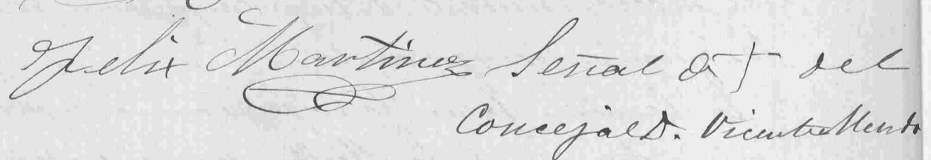 Felix Martinez Señal de † del
Concejal D. Vicente